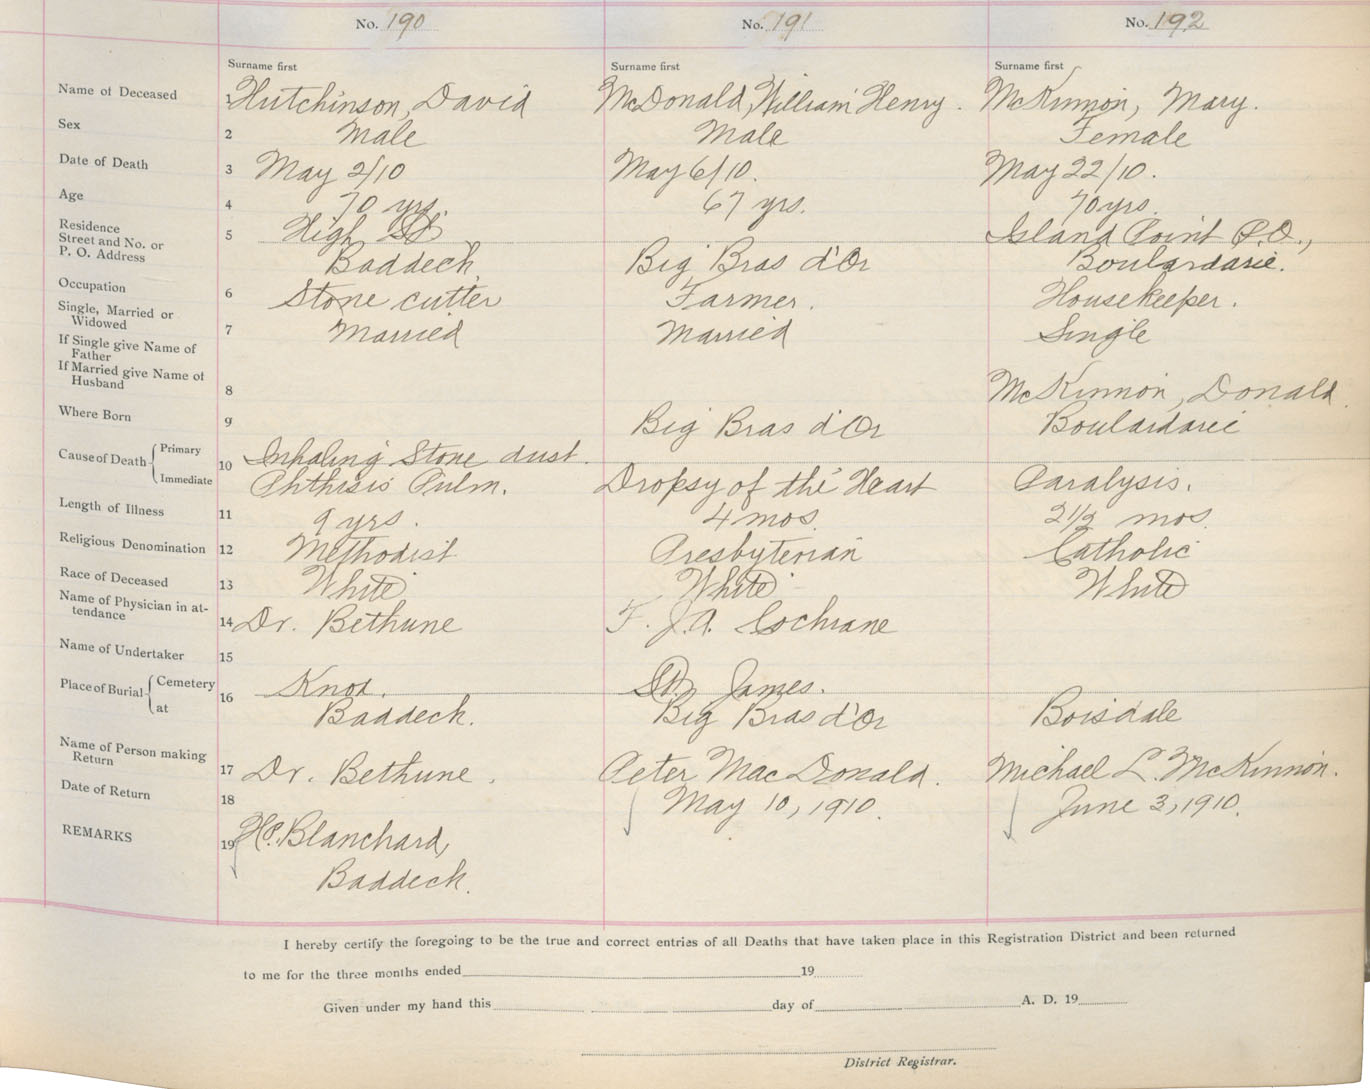 No. 190 No. 191 No. 192
Surname first Surname first Surname first
Name of Deceased 1 Hutchinson, David McDonald, William Henry. McKinnon, Mary.
Sex 2 Male Male Female
Date of Death 3 May 2/10 May 6/10. May 22/10.
Age 4 70 yrs. 67 yrs. 70 yrs.
Residence
Street and No. or 5 High St. Island Point P.O.,
P. O. Address Baddeck, Big Bras d'Or Boulardarie.
Occupation 6 Stone cutter Farmer. Housekeeper.
Single, Married or
Widowed 7 Married Married Single
If Single give Name of
Father
If Married give Name of
Husband 8 McKinnon, Donald
Where Born 9 Big Bras d'Or Boulardarie
Cause of Death Primary 10 Inhaling Stone dust.
Immediate Phthisis Pulm. Dropsy of the Heart Paralysis.
Length of Illness 11 9 yrs. 4 mos. 2 1/2 mos.
Religious Denomination 12 Methodist Presbyterian Catholic
Race of Deceased 13 White White White
Name of Physician in at-
tendance 14 Dr. Bethune F. J.A. Cochrane
Name of Undertaker 15
Place of Burial Cemetery 16 Knox. St. James.
at Baddeck. Big Bras d'Or Boisdale
Name of Person making
Return 17 Dr. Bethune. Peter MacDonald. Michael L. McKinnon.
Date of Return 18 May 10, 1910. June 3, 1910.
REMARKS 19 Blanchard,
Baddeck.
I hereby certify the foregoing to be the true and correct entries of all Deaths that have taken place in this Registration District and been returned
to me for the three months ended 19
Given under my hand this day of A. D. 19
District Registrar.